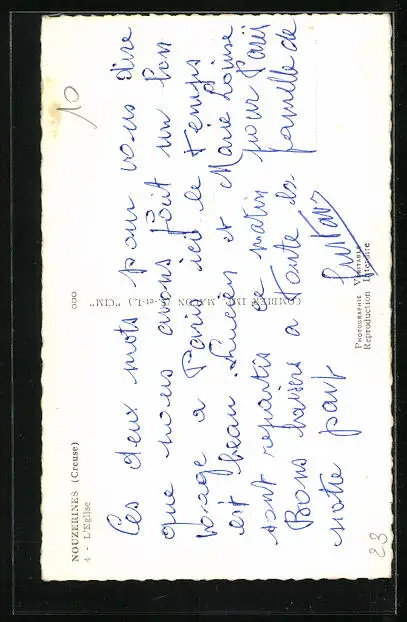 NOUZERINES (Creuse)
4 - L'Eglise
Ces deux mots pour vous dire
que nous avons fait un bon
voyage a Paris ici le temps
est beau. Lucien et Marie Louise
sont repartis ce matin pour Paris
Bons baisers a toute la famille de
notre part
COMBIER IMP. MACON (S.-et-L.) "CIM"
000
PHOTOGRAPHIE VÉRITABLE
Reproduction Interdite
10
23